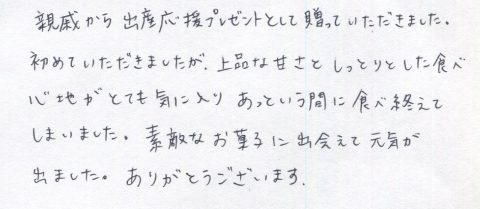 親戚から出産応援プレゼントとして贈っていただきました。
初めていただきましたが、上品な甘さとしっとりとした食べ
心地がとても気に入りあっという間に食べ終えて
しまいました。素敵なお菓子に出会えて元気が
出ました。ありがとうございます.